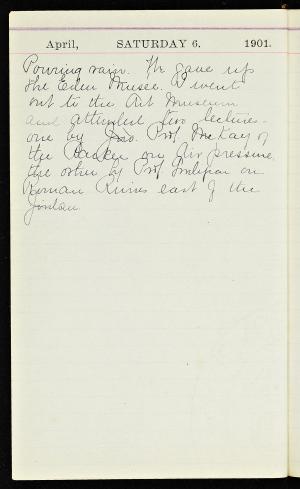 April, SATURDAY 6. 1901.
Pouring rain. We gave up
the Eden Musee. I went
out to the Art Museum
and attended two lectures-
one by Prof. McKay of
the Packer on Air pressure
the other by Prof on
Roman Ruins east of the
Jordan